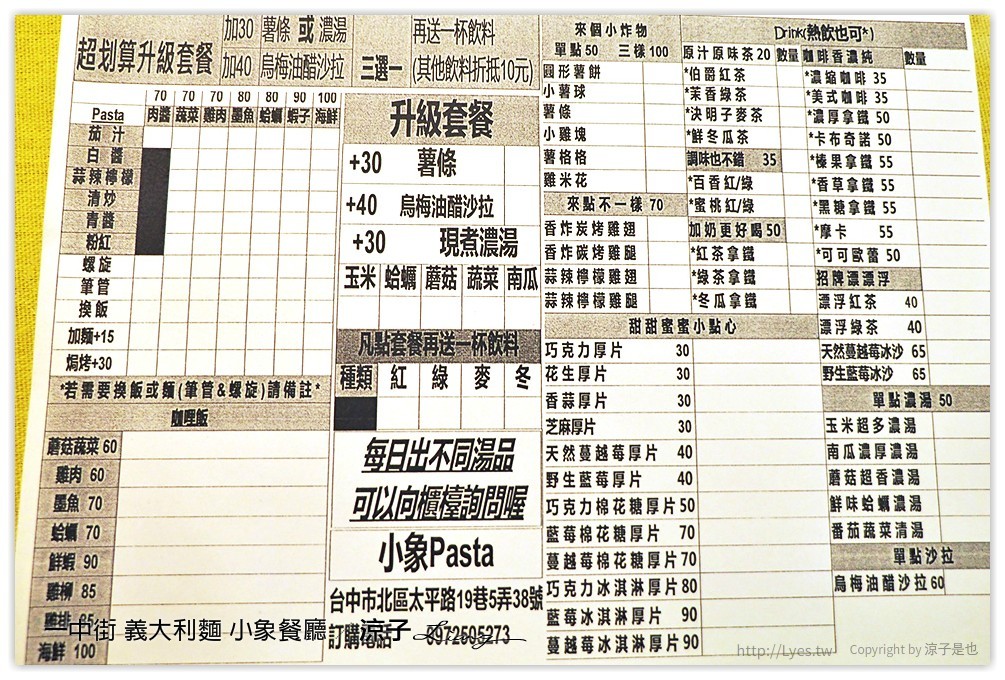 超划算升級套餐
加30 薯條 或 濃湯
加40 烏梅油醋沙拉
三選一
再送一杯飲料
(其他飲料折抵10元)
70 70 70 80 80 90 100
Pasta 肉醬 蔬菜 雞肉 墨魚 蛤蠣 蝦子 海鮮
茄汁
白醬
蒜辣檸檬
清炒
青醬
粉紅
螺旋
筆管
換飯
加麵+15
焗烤+30
*若需要換飯或麵(筆管&螺旋)請備註*
咖哩飯
蘑菇蔬菜 60
雞肉 60
墨魚 70
蛤蠣 70
鮮蝦 90
雞柳 85
雞排 65
海鮮 100
升級套餐
+30 薯條
+40 烏梅油醋沙拉
+30 現煮濃湯
玉米 蛤蠣 蘑菇 蔬菜 南瓜
凡點套餐再送一杯飲料
種類 紅 綠 麥 冬
每日出不同湯品
可以向櫃檯詢問喔
小象Pasta
台中市北區太平路19巷5弄38號
訂購電話 0972505273
來個小炸物
單點50 三樣100
圓形薯餅
小薯球
薯條
小雞塊
薯格格
雞米花
來點不一樣 70
香炸炭烤雞翅
香炸碳烤雞腿
蒜辣檸檬雞翅
蒜辣檸檬雞腿
甜甜蜜蜜小點心
巧克力厚片 30
花生厚片 30
香蒜厚片 30
芝麻厚片 30
天然蔓越莓厚片 40
野生藍莓厚片 40
巧克力棉花糖厚片 50
藍莓棉花糖厚片 70
蔓越莓棉花糖厚片 70
巧克力冰淇淋厚片 80
藍莓冰淇淋厚片 90
蔓越莓冰淇淋厚片 90
Drink(熱飲也可*)
原汁原味茶20 數量
*伯爵紅茶
*茉香綠茶
*決明子麥茶
*鮮冬瓜茶
調味也不錯 35
*百香紅/綠
*蜜桃紅/綠
加奶更好喝50
*紅茶拿鐵
*綠茶拿鐵
*冬瓜拿鐵
咖啡香濃純 數量
*濃縮咖啡 35
*美式咖啡 35
*濃厚拿鐵 50
*卡布奇諾 50
*榛果拿鐵 55
*香草拿鐵 55
*黑糖拿鐵 55
*摩卡 55
*可可歐蕾 50
招牌漂漂浮
漂浮紅茶 40
漂浮綠茶 40
天然蔓越莓冰沙 65
野生藍莓冰沙 65
單點濃湯 50
玉米超多濃湯
南瓜濃厚濃湯
蘑菇超香濃湯
鮮味蛤蠣濃湯
番茄蔬菜清湯
單點沙拉
烏梅油醋沙拉60
中街 義大利麵 小象餐廳
涼子
http://Lyes.tw Copyright by 涼子是也